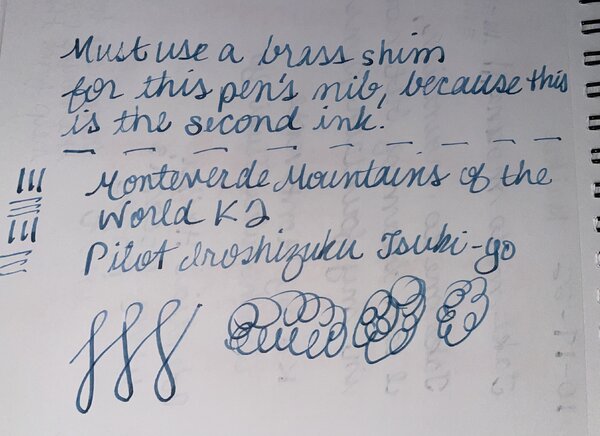 Must use a brass shim
for this pen's nib, because this
is the second ink.
Monteverde Mountains of the
World K2
Pilot Iroshizuku Tsuki-yo